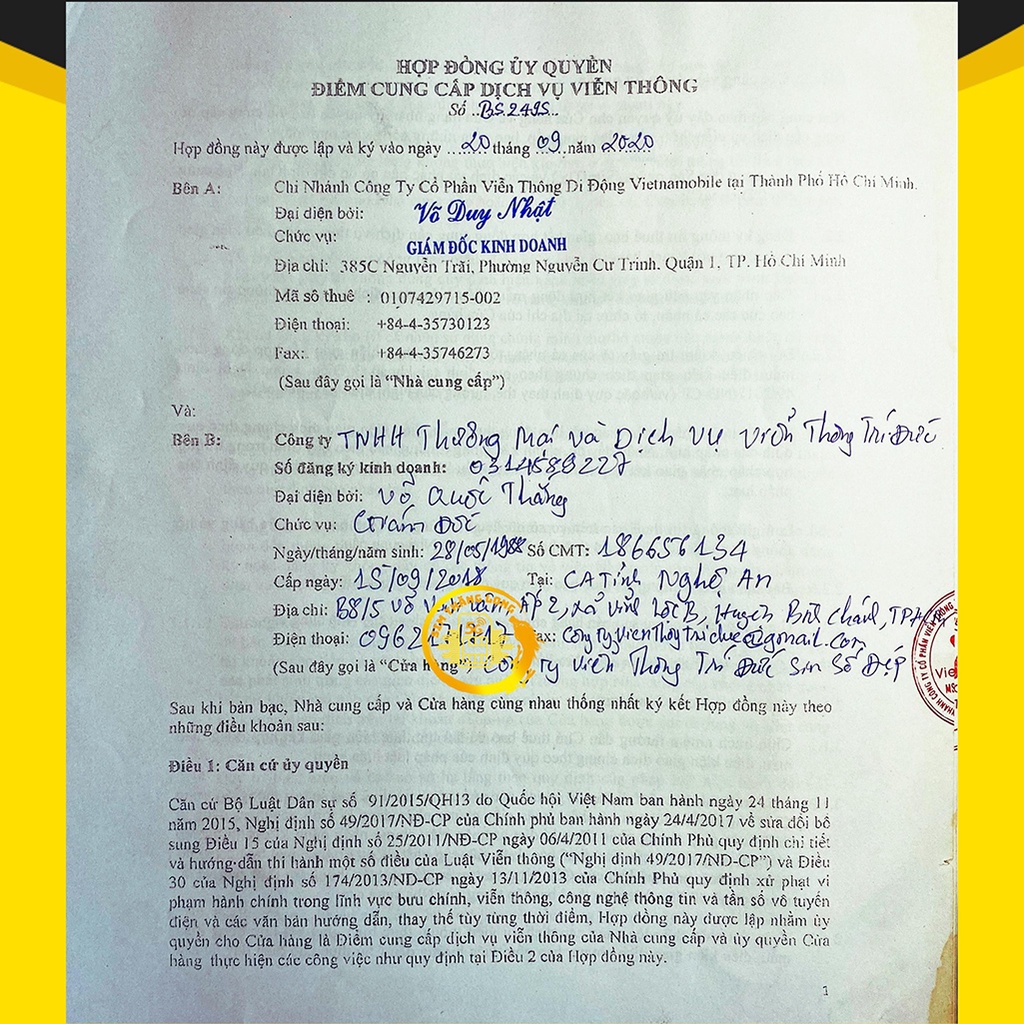 HỢP ĐỒNG ỦY QUYỀN
ĐIỂM CUNG CẤP DỊCH VỤ VIỄN THÔNG
Số ..BS2495...
Hợp đồng này được lập và ký vào ngày .....20 tháng .09. năm 2020
Bên A: Chi Nhánh Công Ty Cổ Phần Viễn Thông Di Động Vietnamobile tại Thành Phố Hồ Chí Minh.
Đại diện bởi: Võ Duy Nhật
Chức vụ: GIÁM ĐỐC KINH DOANH
Địa chỉ: 385C Nguyễn Trãi, Phường Nguyễn Cư Trinh, Quận 1, TP. Hồ Chí Minh
Mã số thuê : 0107429715-002
Điện thoại: +84-4-35730123
Fax: +84-4-35746273
(Sau đây gọi là “Nhà cung cấp”)
Và:
Bên B: Công ty TNHH Thương Mại và Dịch vụ viễn Thông Trí Đức
Số đăng ký kinh doanh: 0314589227
Đại diện bởi: Võ Quốc Thắng
Chức vụ: Giám Đốc
Ngày/tháng/năm sinh: 28/05/1988 Số CMT: 186656134
Cấp ngày: 15/09/2018 Tại: CA Tỉnh Nghệ An
Địa chỉ: B8/5 Võ ẤP 2, xã Vĩnh Lộc B, Huyện Bình Chánh,
Điện thoại: Fax: congtyvienthongtriduc@gmail.com
(Sau đây gọi là “Cửa hàng” ty Viễn Thông Trí Đức Sim Số Đẹp
Sau khi bàn bạc, Nhà cung cấp và Cửa hàng cùng nhau thống nhất ký kết Hợp đồng này theo
những điều khoản sau:
Điều 1: Căn cứ ủy quyền
Căn cứ Bộ Luật Dân sự số 91/2015/QH13 do Quốc hội Việt Nam ban hành ngày 24 tháng 11
năm 2015, Nghị định số 49/2017/NĐ-CP của Chính phủ ban hành ngày 24/4/2017 về sửa đổi bổ
sung Điều 15 của Nghị định số 25/2011/NĐ-CP ngày 06/4/2011 của Chính Phủ quy định chi tiết
và hướng dẫn thi hành một số điều của Luật Viễn thông (“Nghị định 49/2017/NĐ-CP”) và Điều
30 của Nghị định số 174/2013/NĐ-CP ngày 13/11/2013 của Chính Phủ quy định xử phạt vi
phạm hành chính trong lĩnh vực bưu chính, viễn thông, công nghệ thông tin và tần số vô tuyến
điện và các văn bản hướng dẫn, thay thế tùy từng thời điểm, Hợp đồng này được lập nhằm ủy
quyền cho Cửa hàng là Điểm cung cấp dịch vụ viễn thông của Nhà cung cấp và ủy quyền Cửa
hàng thực hiện các công việc như quy định tại Điều 2 của Hợp đồng này.
1